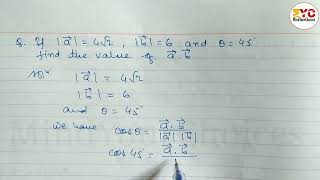 EYC
Q. If |a⃗| = 4√2 , |b⃗| = 6 and θ = 45°
find the value of a⃗.b⃗
Solⁿ |a⃗| = 4√2
|b⃗| = 6
and θ = 45°
we have cosθ = a⃗.b⃗ / |a⃗| |b⃗|
cos 45° = a⃗.b⃗